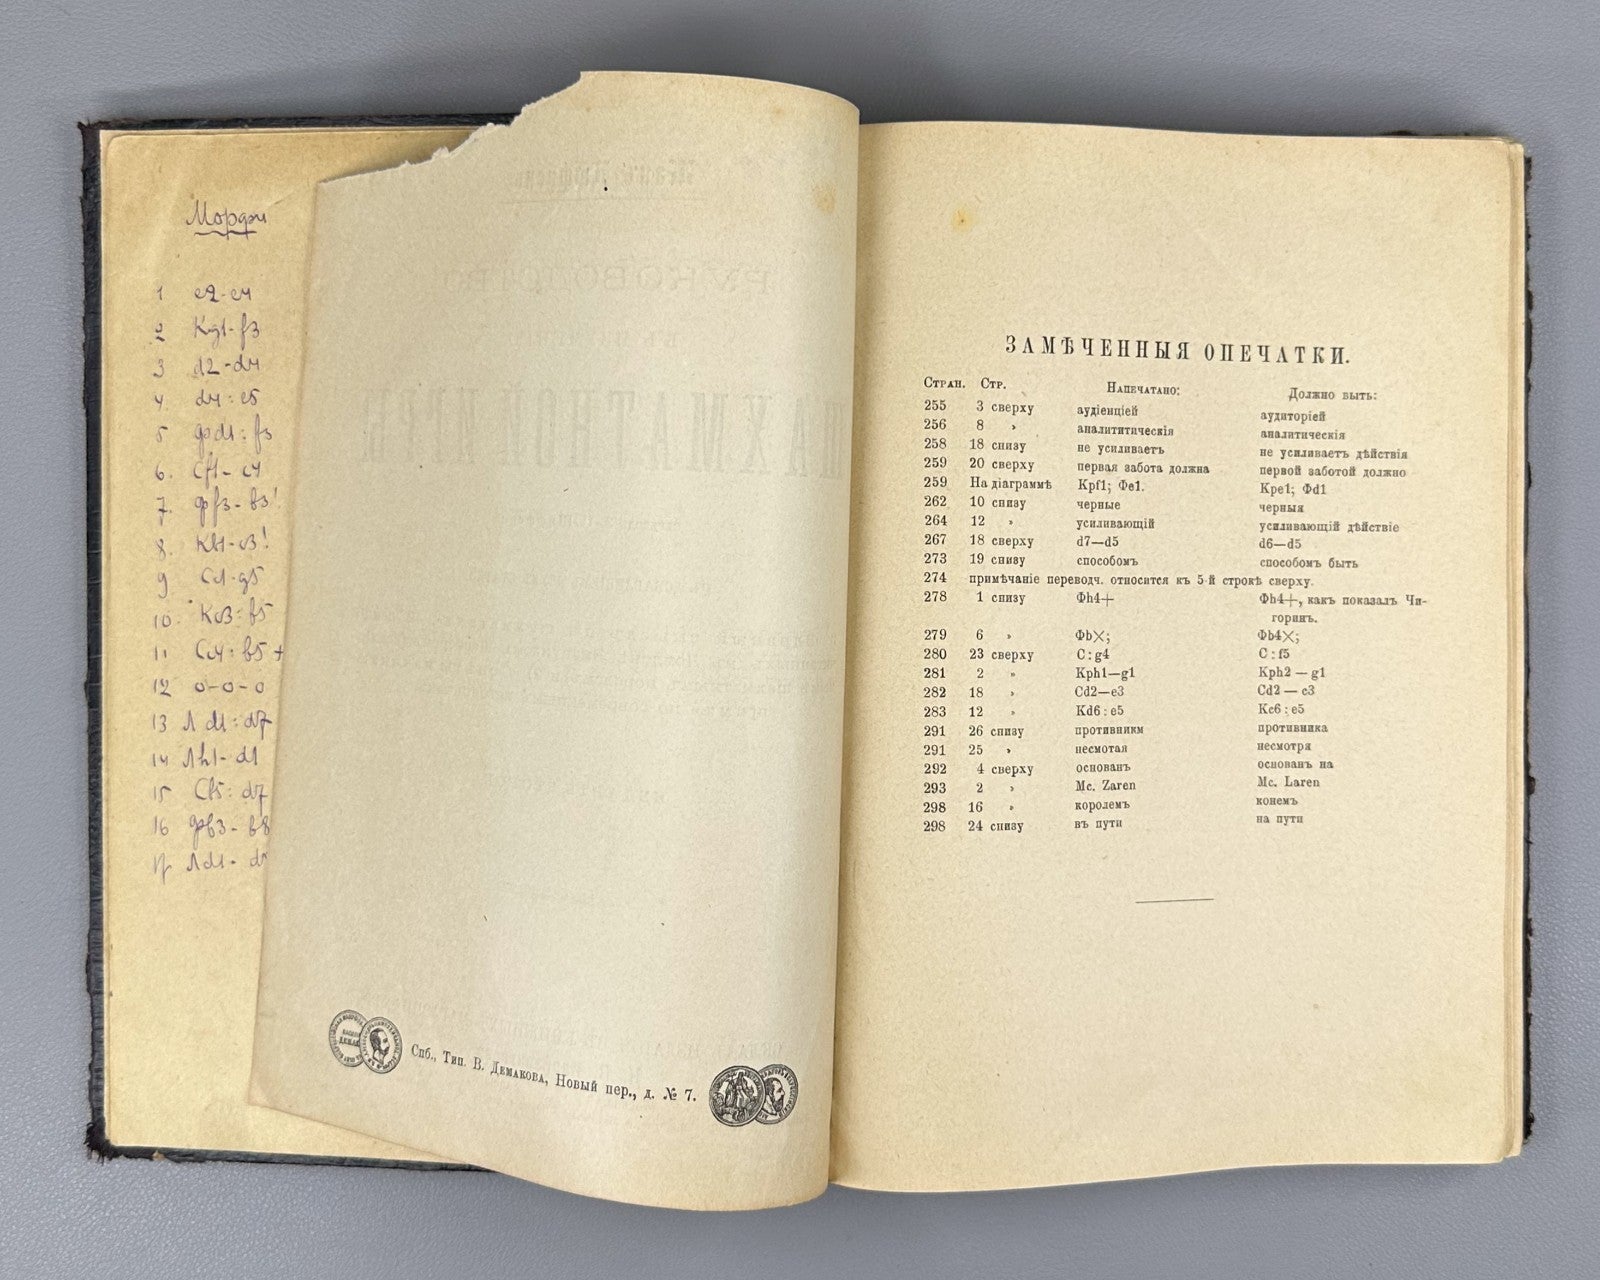 Морфи
1 e2-e4
2 Kg1-f3
3 d2-d4
4. d4:e5
5 Фd1:f3
6. Cf1-c4
7. Фf3-b3!
8. Kb1-c3!
9 Cc1-g5
10. Kc3:b5
11 Cc4:b5+
12 0-0-0
13 Лd1:d7
14 Лh1-d1
15 Cb5:d7
16 Фb3-b8
17 Лd1-d8
Спб., Тип. В. Демакова, Новый пер., д. № 7.
ЗАМѢЧЕННЫЯ ОПЕЧАТКИ.
Стран. Стр. Напечатано: Должно быть:
255 3 сверху аудіенціей аудиторіей
256 8 » аналититическія аналитическія
258 18 снизу не усиливаетъ не усиливаетъ дѣйствія
259 20 сверху первая забота должна первой заботой должно
259 На діаграммѣ Kpf1; Фe1. Kpe1; Фd1
262 10 снизу черные черныя
264 12 » усиливающій усиливающій дѣйствіе
267 18 сверху d7—d5 d6—d5
273 19 снизу способомъ способомъ быть
274 примѣчаніе переводч. относится къ 5-й строкѣ сверху.
278 1 снизу Фh4+ Фh4+, какъ показалъ Чи-
горинъ.
279 6 » Фb×; Фb4×;
280 23 сверху C:g4 C:f5
281 2 » Kph1—g1 Kph2—g1
282 18 » Cd2—e3 Cd2—c3
283 12 » Kd6:e5 Kc6:e5
291 26 снизу противникм противника
291 25 » несмотая несмотря
292 4 сверху основанъ основанъ на
293 2 » Mc. Zaren Mc. Laren
298 16 » королемъ конемъ
298 24 снизу въ пути на пути